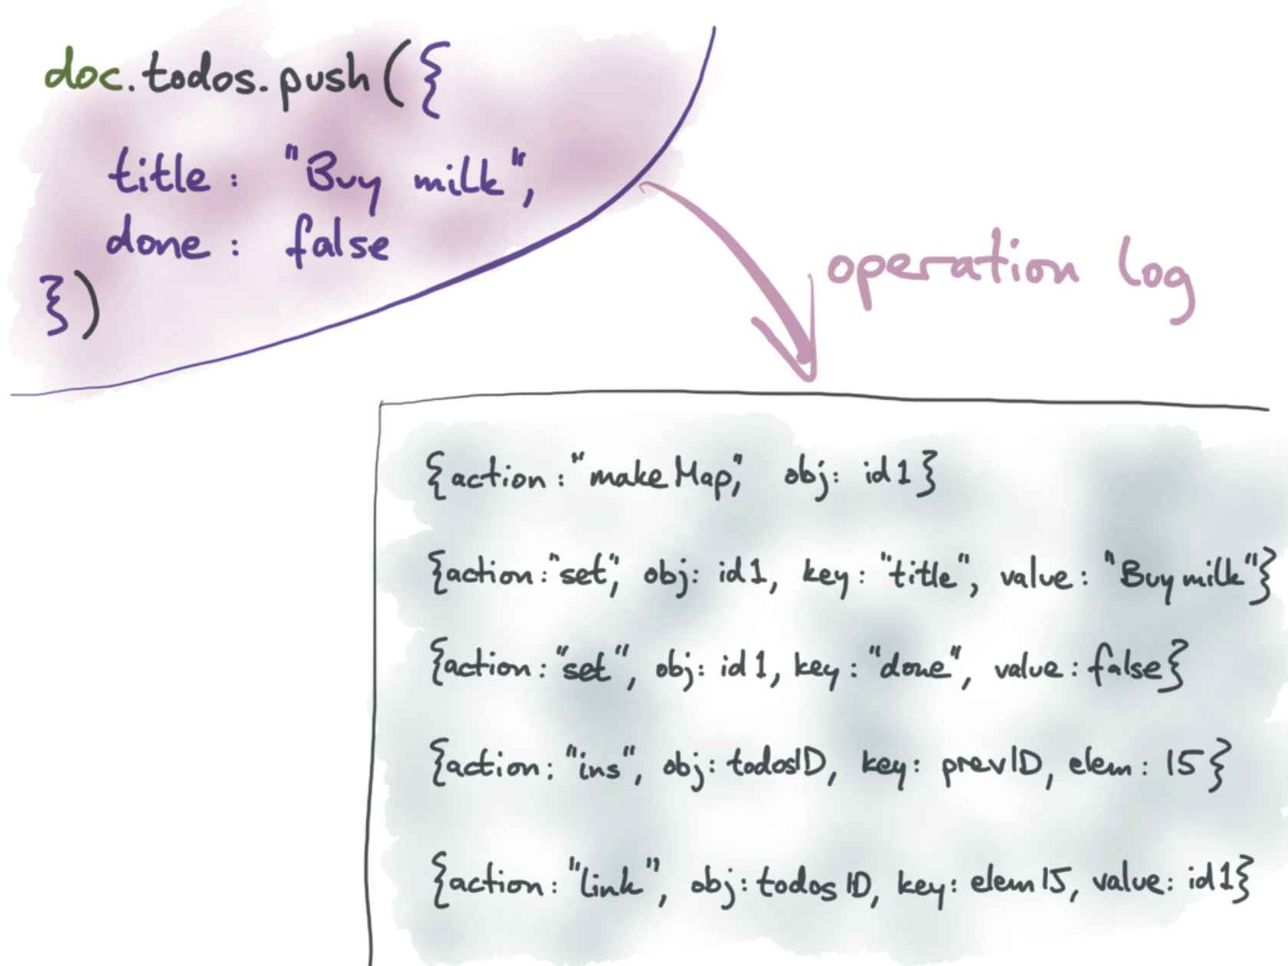 doc.todos.push({
title: "Buy milk",
done: false
})
operation log
{action: "makeMap", obj: id1}
{action: "set", obj: id1, key: "title", value: "Buy milk"}
{action: "set", obj: id1, key: "done", value: false}
{action: "ins", obj: todosID, key: prevID, elem: 15}
{action: "link", obj: todosID, key: elem15, value: id1}